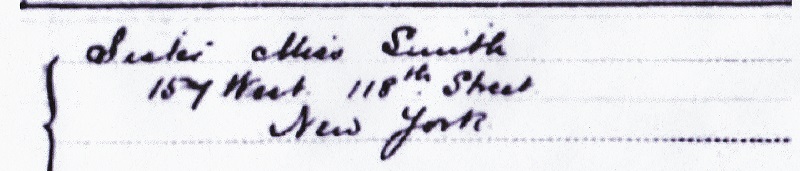 Sister Miss Smith
157 West 118th Street
New York